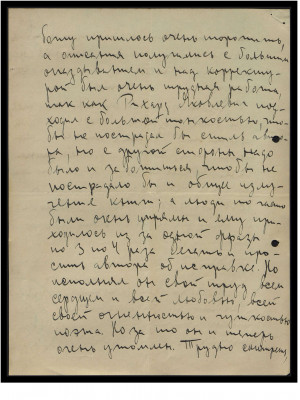 было пришлось очень торопить,
а описания получились с большим
опаздыванием и над корректу-
рой был очень трудная работа,
так как Рихард Яковлевич под-
ходил с большой тонкостью, что-
бы не пострадал бы стиль авто-
ра, но с другой стороны надо
было и заботиться, чтобы не
пострадало бы и общее излу-
чение книги; а люди то часто
были очень упрямы и ему при-
ходилось из за одной фразы
по 3 по 4 раза бегать и про-
сить автора об исправке. Но
исполнял он свой труд всем
сердцем и всей любовью, всей
своей огненностью и чуткостью
поэта. Но за то он и теперь
очень утомлен. Трудно